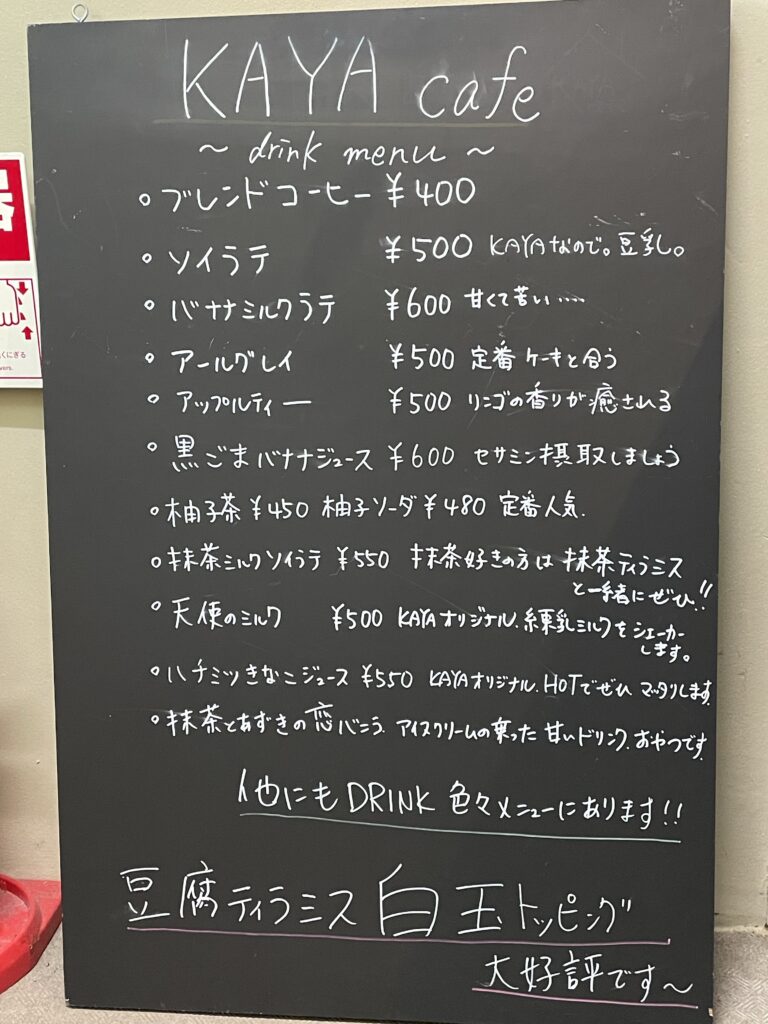 KAYA cafe
~ drink menu ~
。ブレンドコーヒー ¥400
。ソイラテ ¥500 KAYAなので。豆乳。
。バナナミルクラテ ¥600 甘くて苦い....
。アールグレイ ¥500 定番 ケーキと合う
。アップルティー ¥500 リンゴの香りが癒される
。黒ごまバナナジュース ¥600 セサミン摂取しましょう
。柚子茶 ¥450 柚子ソーダ ¥480 定番人気.
。抹茶ミルクソイラテ ¥550 抹茶好きの方は 抹茶ティラミス
と一緒にぜひ!!
。天使のミルク ¥500 KAYAオリジナル.練乳ミルクをシェーカー
します。
。ハチミツきなこジュース ¥550 KAYAオリジナル.HOTでぜひ マッタリします.
。抹茶とあずきの恋バニラ アイスクリームの乗った 甘いドリンク.おやつです.
他にも DRINK 色々メニューにあります!!
豆腐ティラミス 白玉トッピング
大好評です~
器
くにぎる
vers.